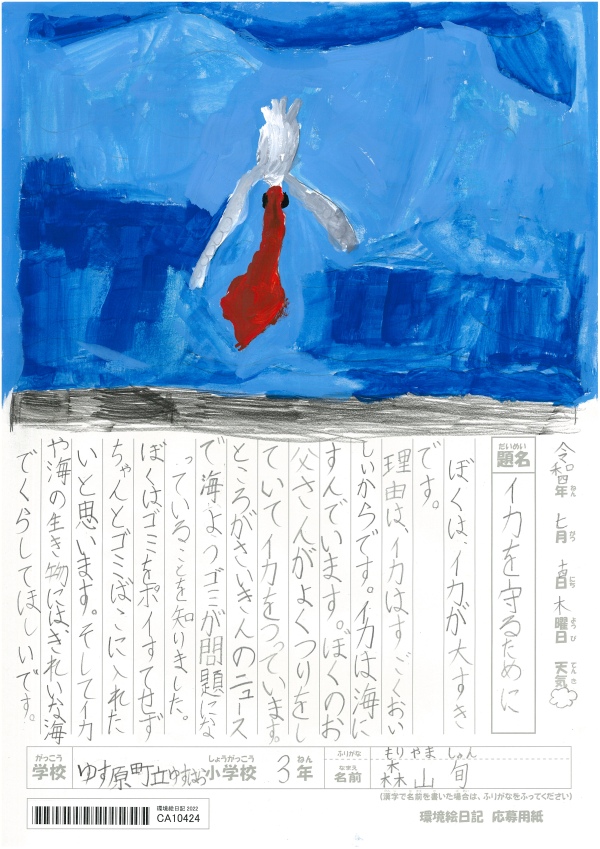 令和四年 七月 十四日 木曜日 天気
ねん がつ にち ようび てんき
だいめい
題名 イカを守るために
ぼくは、イカが大すき
です。
理由は、イカはすごくおい
しいからです。イカは海に
すんでいます。ぼくのお
父さんがよくつりをし
ていてイカをつっています。
ところがさいきんのニュース
で海ようゴミが問題にな
っていることを知りました。
ぼくはゴミをポイすてせず
ちゃんとゴミばこに入れた
いと思います。そしてイカ
や海の生き物にはきれいな海
でくらしてほしいです。
がっこう しょうがっこう ねん
学校 ゆす原町立ゆすはら小学校 3年
ふりがな もり やま しゅん
なまえ
名前 森山 旬
(漢字で名前を書いた場合は、ふりがなをふってください)
環境絵日記 2022
CA10424
環境絵日記 応募用紙